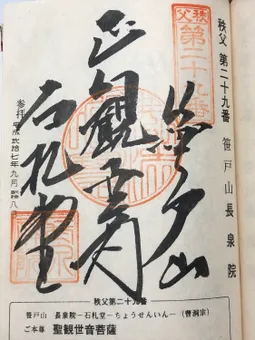 秩父 第二十九番 笹戸山 長泉院
秩父
第二十九番
笹戸山
正観世音
石札堂
参拝 平成 弐拾七年 九月 拾八
秩父第二十九番
笹戸山 長泉院－石札堂－ちょうせんいん－（曹洞宗）
ご本尊 聖観世音菩薩